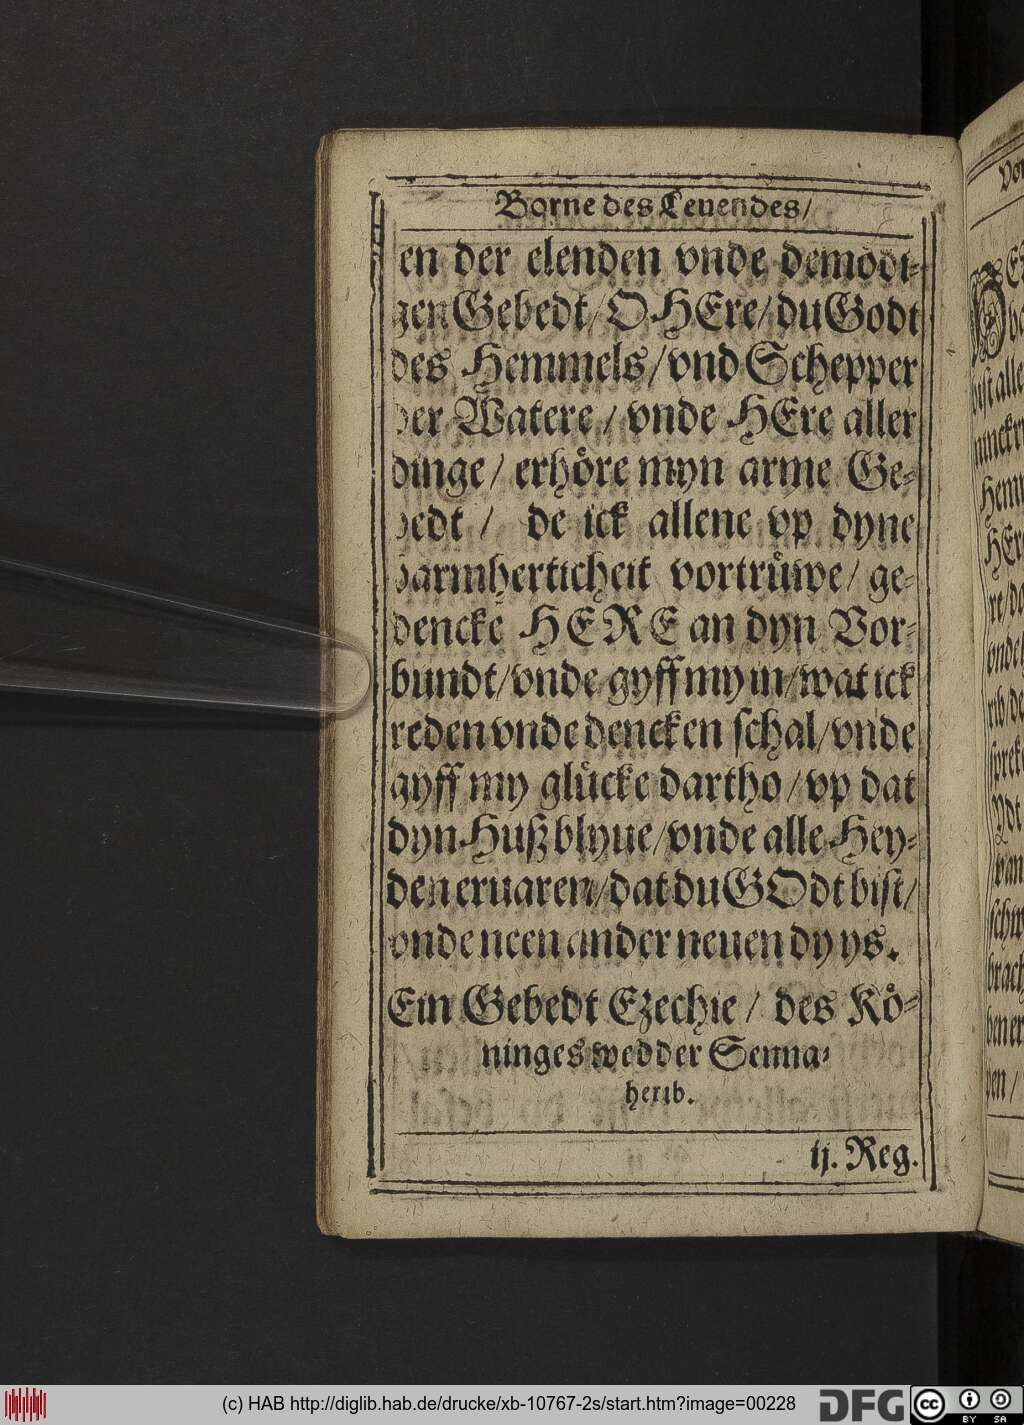 Borne des Leuendes/
en der elenden vnde demödi⸗
gen Gebedt/ O HEre/ du Godt
des Hemmels/ vnd Schepper
der Watere/ vnde HEre aller
dinge/ erhöre myn arme Ge⸗
bedt/ de ick allene vp dyne
barmherticheit vortrüwe/ ge⸗
dencke HERE an dyn Vor⸗
bundt/ vnde gyff my in/ wat ick
reden vnde dencken schal/ vnde
gyff my glücke dartho/ vp dat
dyn Huß blyue/ vnde alle Hey⸗
den eruaren/ dat du GOdt bist/
vnde neen ander neuen dy ys.
Ein Gebedt Ezechie/ des Kö⸗
ninges wedder Senna⸗
herib.
ij. Reg.
bist alle
ninckry
Hemm
HEre
re/ de
vnde
rib/ de
spreke
Ydt
van
schw
brach
bener
pen/
(c) HAB http://diglib.hab.de/drucke/xb-10767-2s/start.htm?image=00228
DFG
cc
BY SA